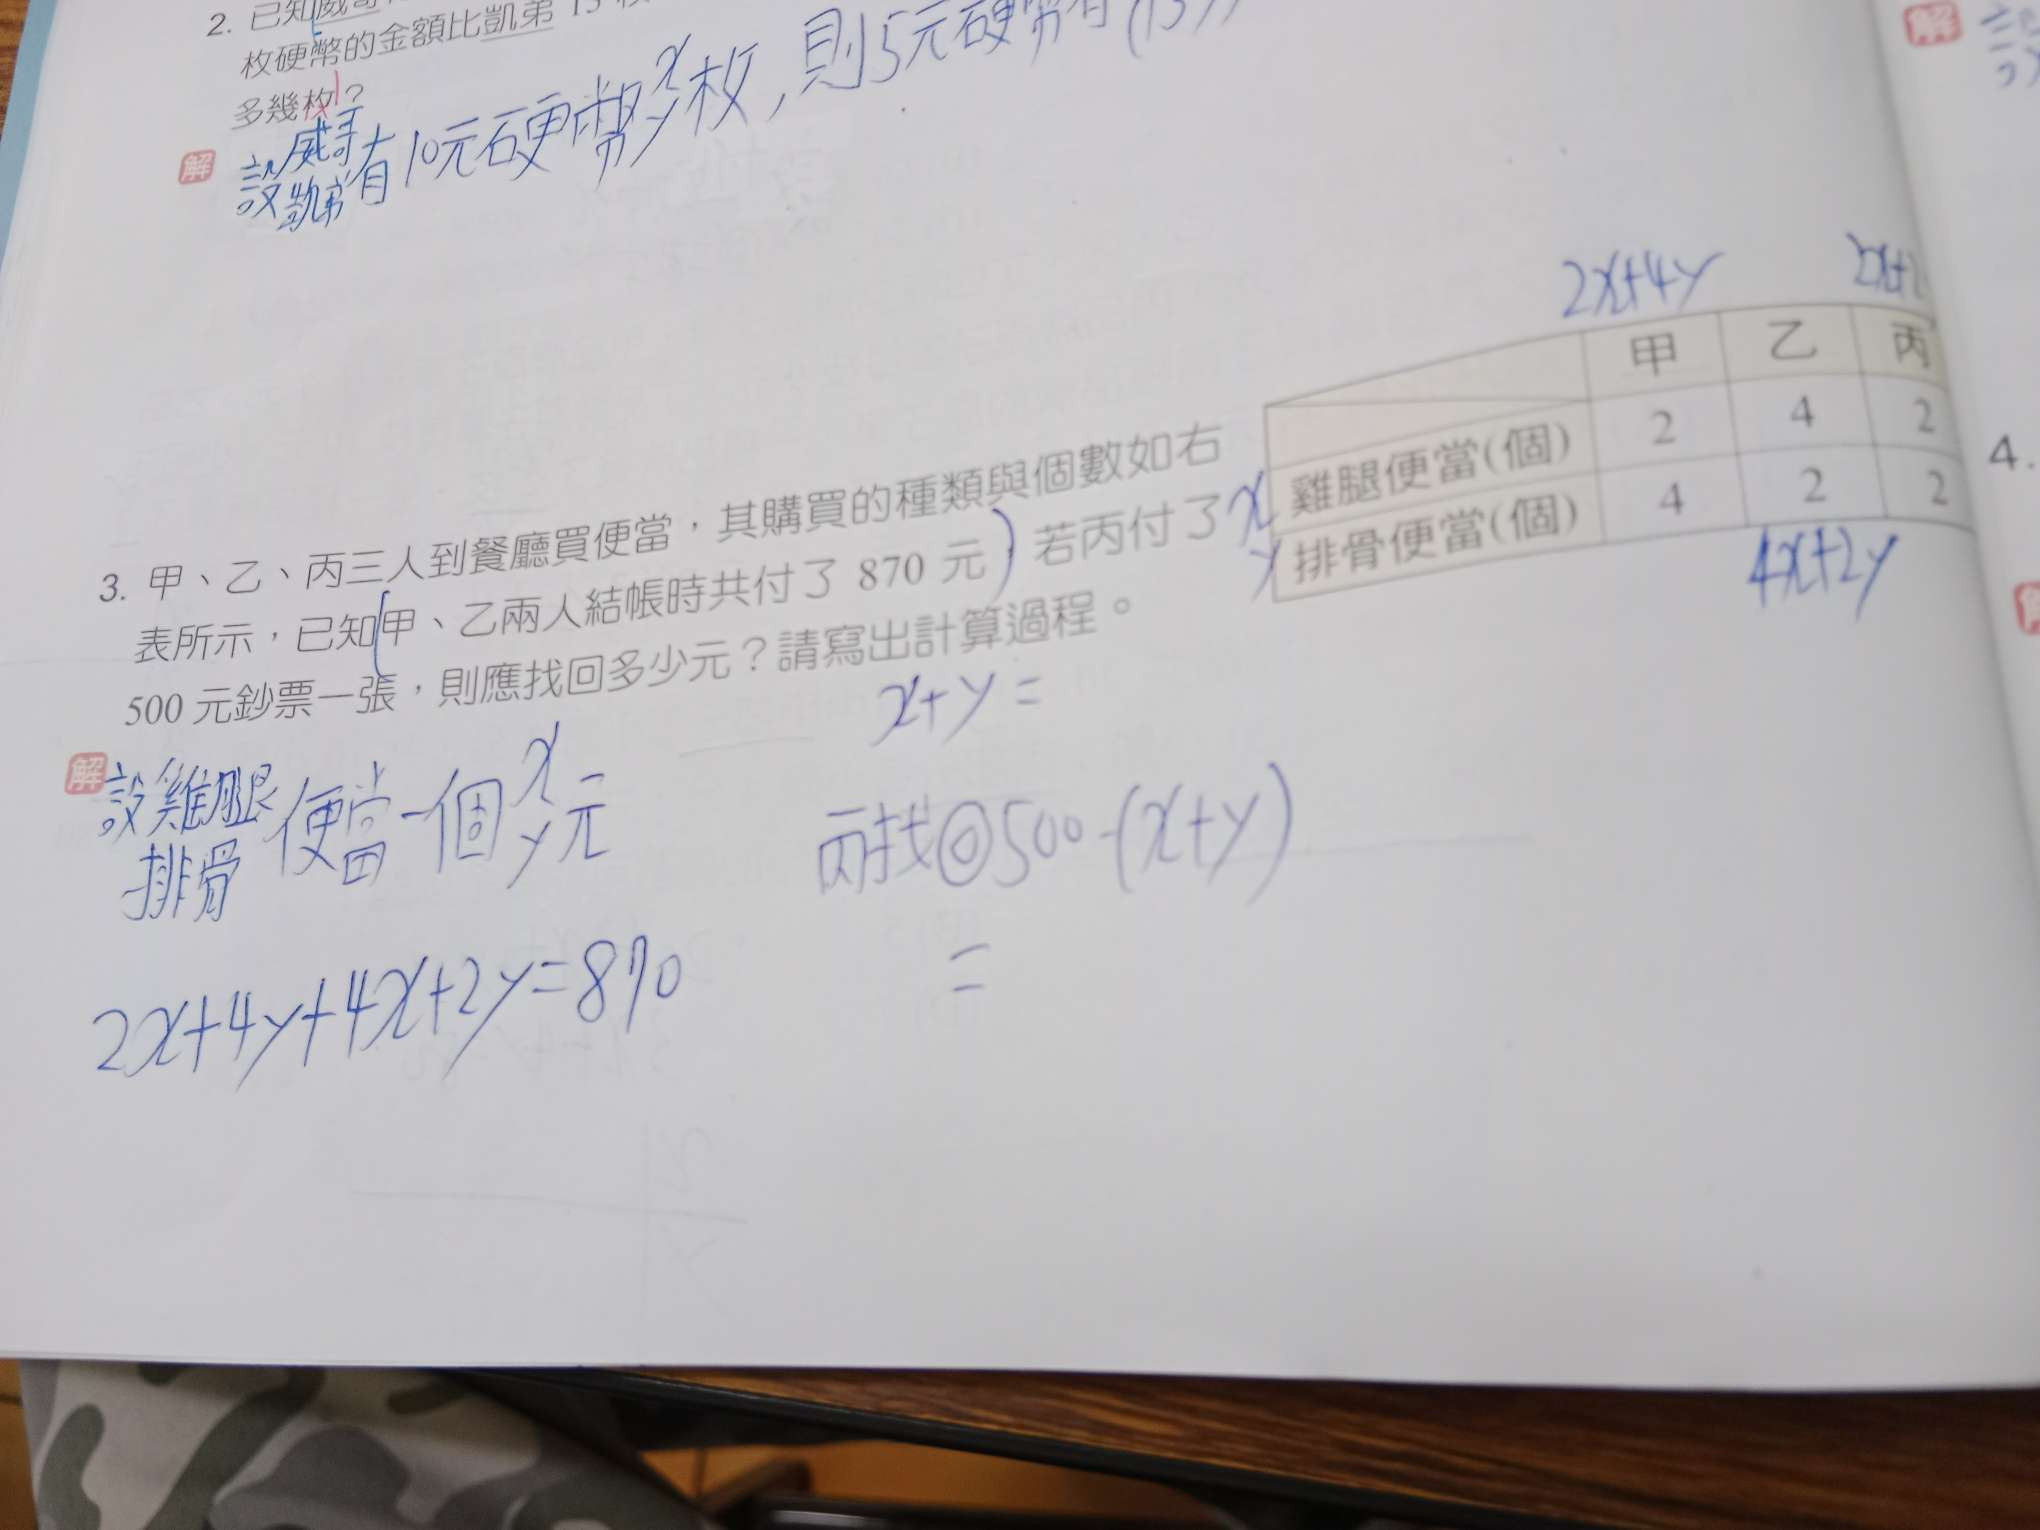 2. 已知威哥
枚硬幣的金額比凱弟 15 枚
多幾枚?
解
設威哥
凱弟
有10元硬幣x
y枚,則5元硬幣有(15
解
2x+4y
2x+2
甲 乙 丙
雞腿便當(個) 2 4 2
排骨便當(個) 4 2 2
x
y
4x+2y
4.
3. 甲、乙、丙三人到餐廳買便當,其購買的種類與個數如右
表所示,已知(甲、乙兩人結帳時共付了 870 元),若丙付了
500 元鈔票一張,則應找回多少元?請寫出計算過程。
x+y=
解
設雞腿
排骨
便當一個x
y元
丙找回500-(x+y)
=
2x+4y+4x+2y=870